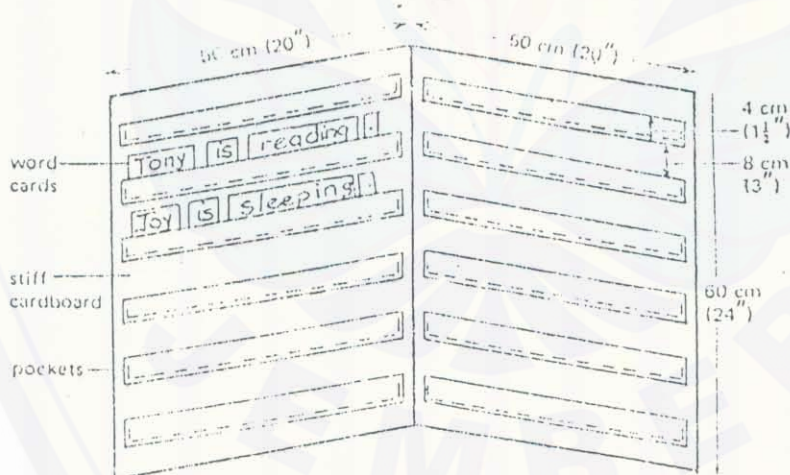 50 cm (20")
50 cm (20")
4 cm
(1½")
8 cm
(3")
word
cards
Tony is reading .
Joy is sleeping .
stiff
cardboard
60 cm
(24")
pockets